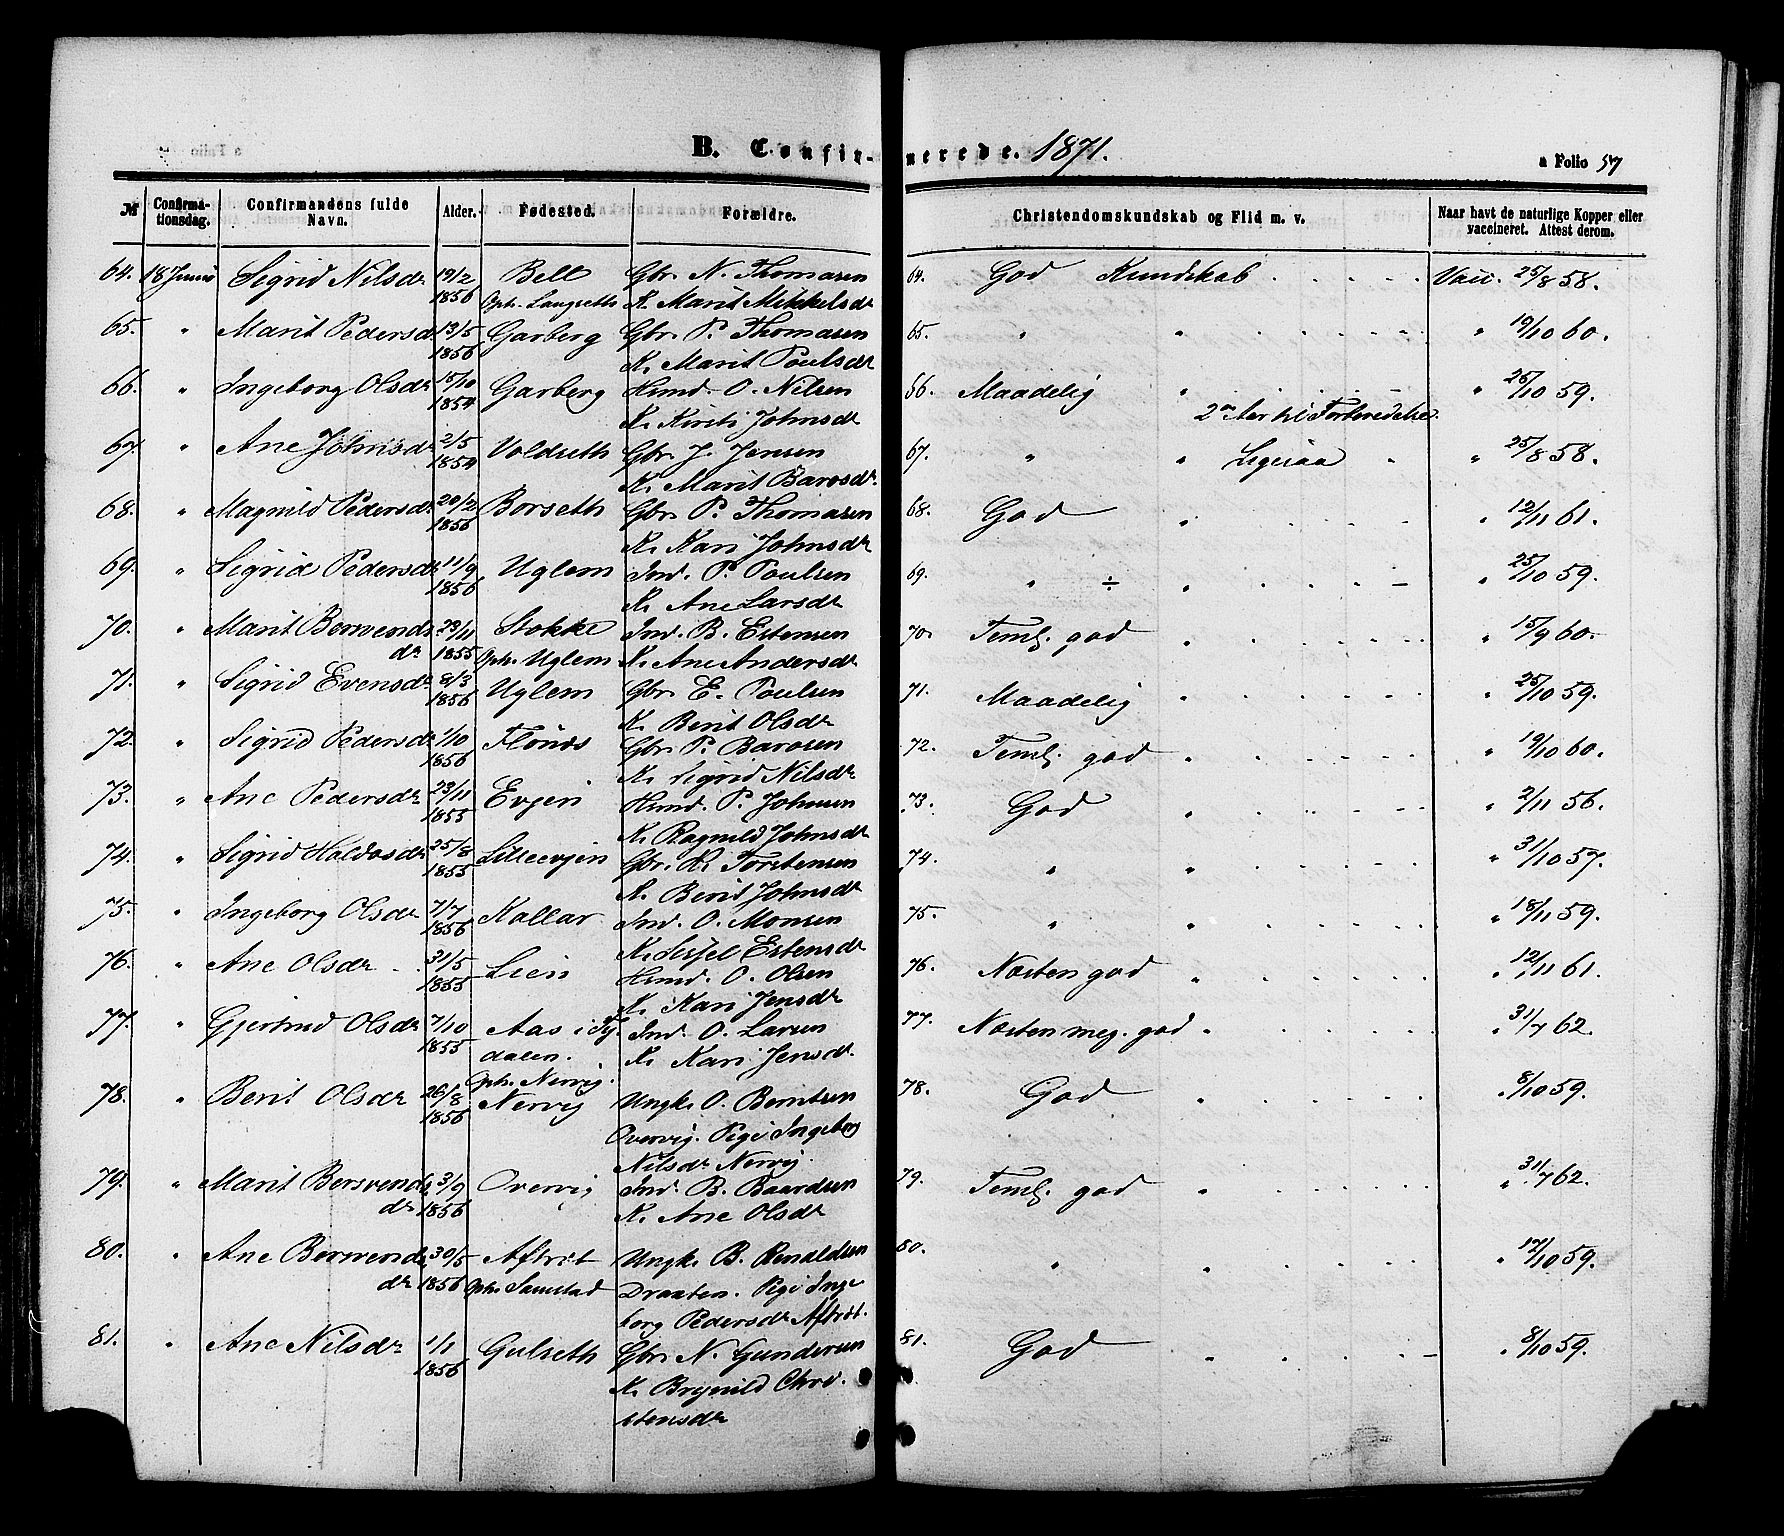 B. Confir-
merede. 1871.
a Folio 57
№ Confirma-tionsdag. Confirmandens fulde Navn. Alder. Fødested. Forældre. Christendomskundskab og Flid m. v. Naar havt de naturlige Kopper eller vaccineret. Attest derom.
64. 18 Junii Sigrid Nilsdr 19/2 Bell Gbr. N. Thomasen 64. God Kundskab Vacc. 25/8 58.
1856 Oph. Langseth K. Marit Mikkelsdr
65. " Marit Pedersdr 13/5 Garberg Gbr. P. Thomasen 65. " " " 19/10 60.
1856 K. Marit Poulsdr
66. " Ingeborg Olsdr 15/10 Garberg Hmd. O. Nilsen 66. Maadelig " " 26/10 59.
1854 K. Kirsti Johnsdr 2n Aar til Forberedelse.
67. " Ane Johnsdr 2/5 Voldseth Gbr. J. Jensen 67. " " Ligesaa " 25/8 58.
1854 K. Marit Barosdr.
68. " Magnild Pedersdr 20/2 Borseth Gbr. P. Thomasen 68. God " " 12/11 61.
1856 K. Kari Johnsdr
69. " Sigrid Pedersdr 11/9 Uglem Ind. P. Poulsen 69. " ÷ " " 25/10 59.
1856 K. Ane Larsdr
70. " Marit Bersvends 29/11 Stokke Ind. B. Estensen 70. Teml. god " " 15/9 60.
dr 1855 Oph. Uglem K. Ane Andersdr
71. " Sigrid Evensdr 8/3 Uglem Gbr. E. Poulsen 71. Maadelig " " 25/10 59.
1856 K. Berit Olsdr
72. " Sigrid Pedersdr 1/10 Flönes Gbr. P. Barosen 72. Teml. god " " 19/10 60.
1856 K. Sigrid Nilsdr
73. " Ane Pedersdr 23/11 Evjen Hmd. P. Johnsen 73. God " " 2/11 56.
1855 K. Ragnild Johnsdr
74. " Sigrid Haldosdr 25/8 Lilleevjen Gbr. H. Torstensen 74. " " " 31/10 57.
1855 K. Berit Johnsdr
75. " Ingeborg Olsdr 7/7 Kallar Ind. O. Monsen 75. " " " 18/11 59.
1856 K. Sissel Estensdr
76. " Ane Olsdr 31/5 Lien Hmd. O. Olsen 76. Næsten god " " 12/11 61.
1855 K. Kari Jensdr
77. " Gjertrud Olsdr 7/10 Aas i Ty- Ind. O. Larsen 77. Næsten meg. god " " 31/7 62.
1855 dalen. K. Kari Jensdr.
Oph. Nervig.
78. " Berit Olsdr 26/8 Nervig Ungk. O. Berntsen 78. God " " 8/10 59.
1856 Overvig. Pige Ingeborg
Nilsdr Nervig.
79. " Marit Bersvends 3/9 Overvig Ind. B. Baardsen 79. Teml. god " " 31/7 62.
dr 1856 K. Ane Olsdr
80. " Ane Bersvends 30/5 Aftröt Ungk. B. Renaldsen 80. " " " 12/10 59.
dr 1856 Oph. Samstad Draaten. Pige Inge
borg Pedersdr Aftröt.
81. " Ane Nilsdr 1/1 Gulseth Gbr. N. Gundersen 81. God " " 8/10 59.
1856 K. Brynild Chri-
stensdr